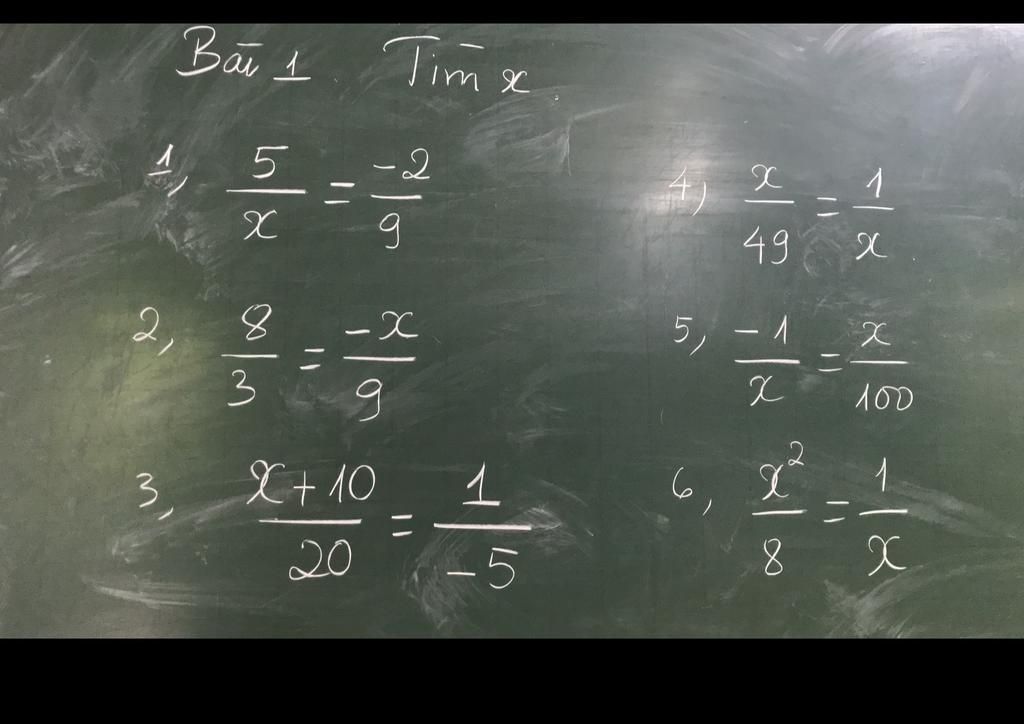 Bài 1. Tìm x.
1, 5/x = -2/9
2, 8/3 = -x/9
3, x+10/20 = 1/-5
4) x/49 = 1/x
5, -1/x = x/100
6, x²/8 = 1/x